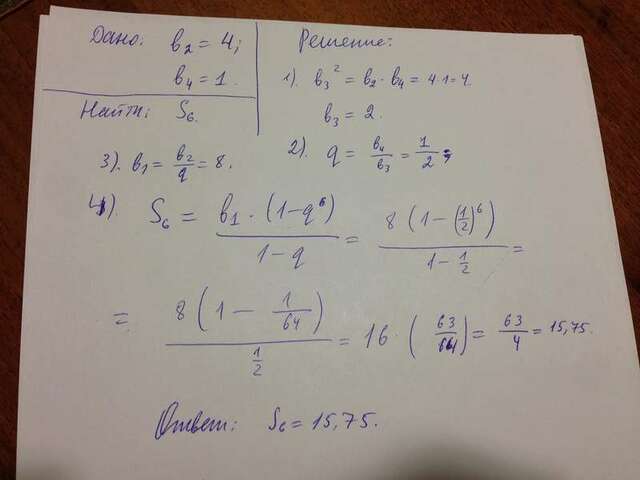 Дано: b₂ = 4;
b₄ = 1.
Найти: S₆.
Решение:
1). b₃² = b₂ · b₄ = 4·1 = 4.
b₃ = 2.
2). q = b₄/b₃ = 1/2;
3). b₁ = b₂/q = 8.
4). S₆ = b₁ · (1-q⁶)/(1-q) = 8(1-(1/2)⁶)/(1-1/2) =
= 8(1 - 1/64)/(1/2) = 16 · (63/64) = 63/4 = 15,75.
Ответ: S₆ = 15,75.